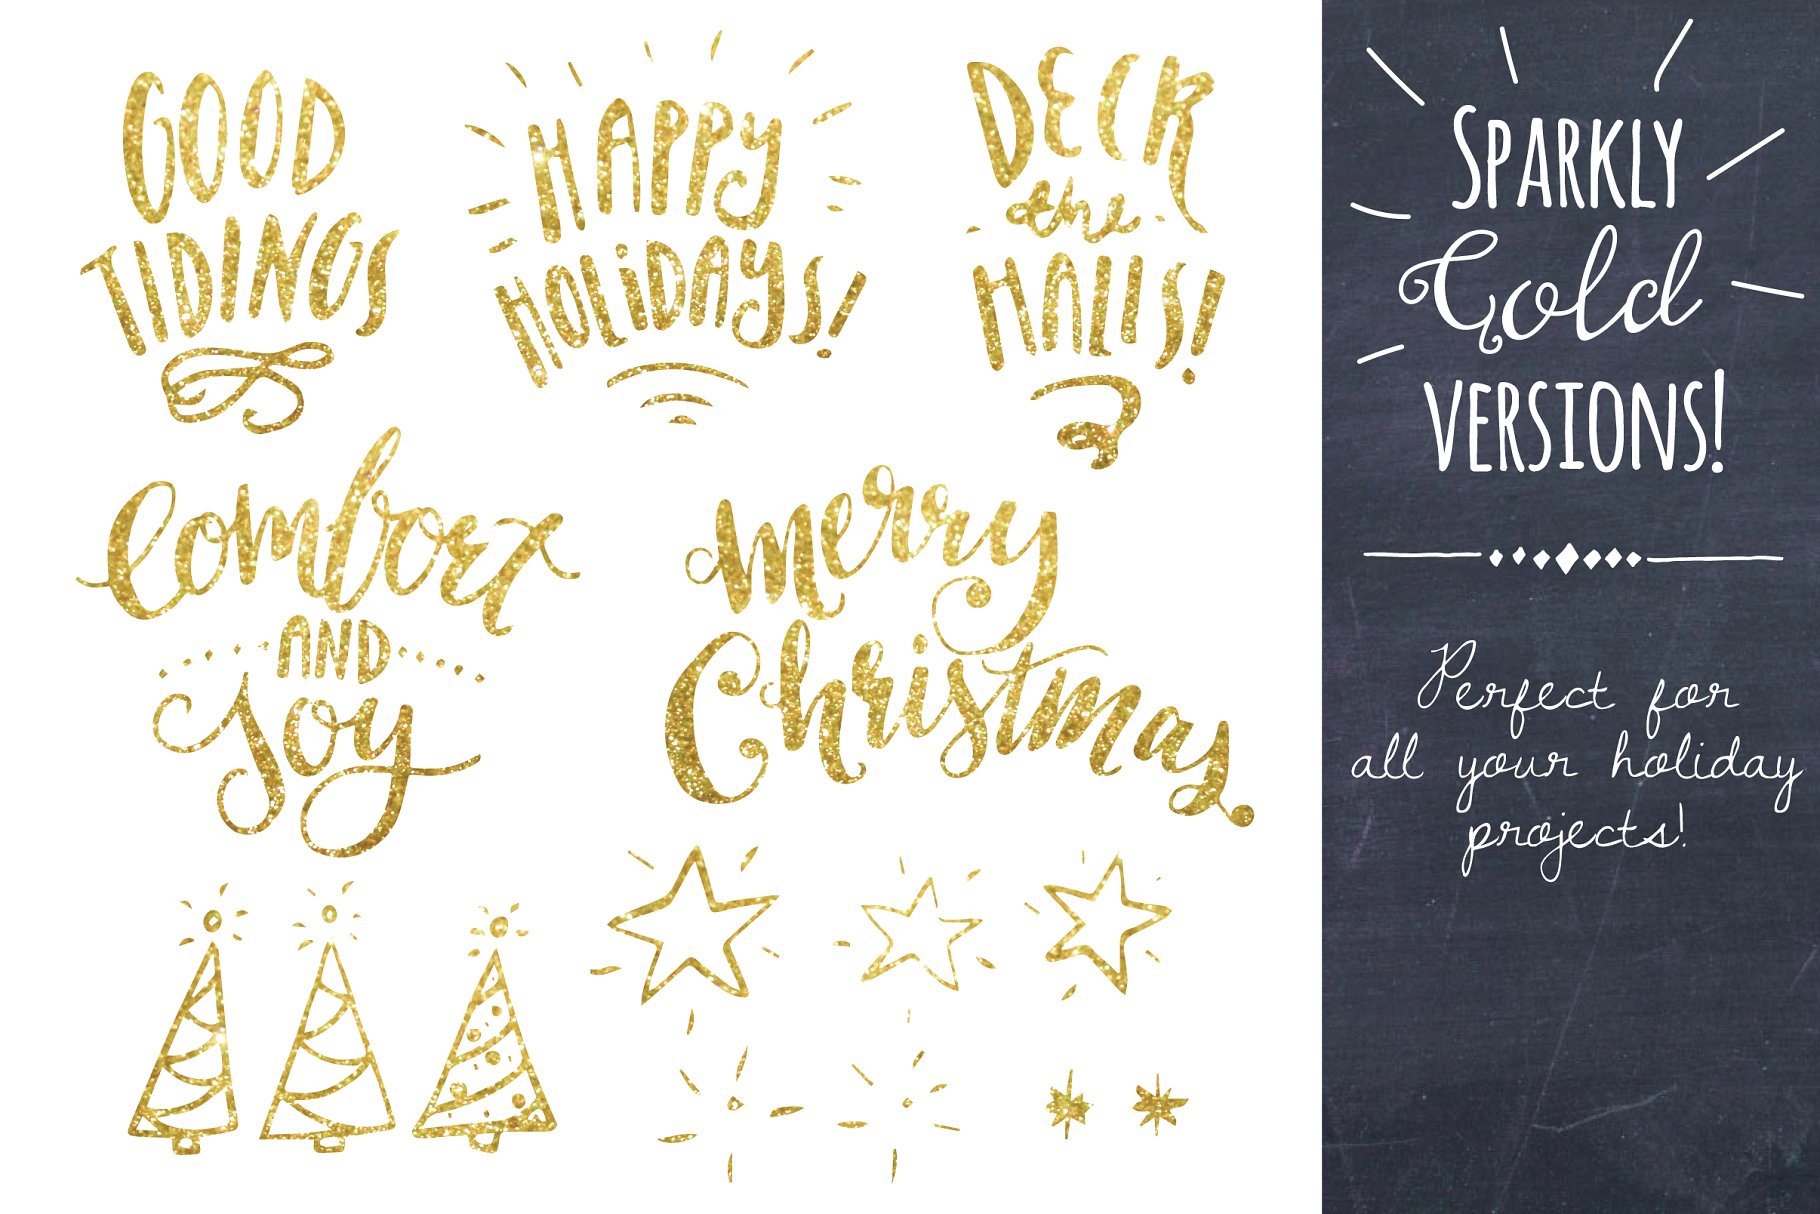 GOOD
TIDINGS
HAPPY
HOLiDAYS!
DECK
the
HALLS!
Comfort
AND
Joy
merry
Christmas
SPARKLY
Gold
VERSIONS!
Perfect for
all your holiday
projects!